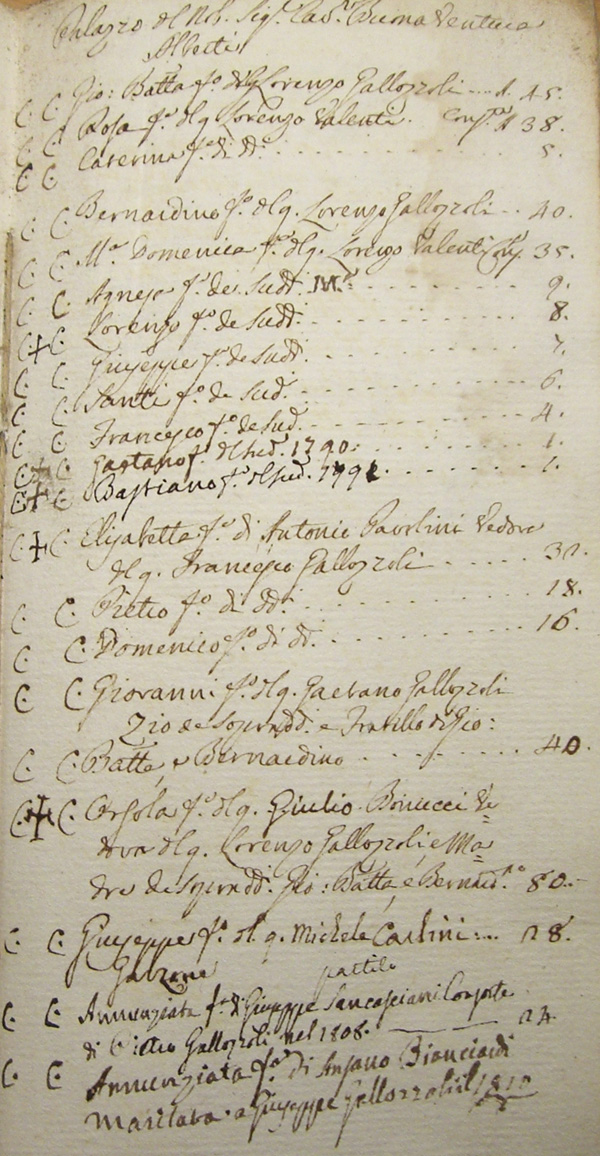 Palazzo del Nob. Sig. Cav. Buona Ventura
Alberti
C. C. Gio: Batta fo. del q. Lorenzo Gallozzoli ... d. 45.
C. C. Rosa fa. del q. Lorenzo Valenti. Cons. d 38.
C. C. Caterina fa. di dti. 5.
C. C. Bernardino fo. del q. Lorenzo Gallozzoli .. 40.
C. C. Ma. Domenica fa. del q. Lorenzo Valenti 35.
C. C. Agnesa fa. de Sudd. 9.
C. + C. Lorenzo fo. de Sudd. 8.
C. C. Giuseppe fo. de Sudd. 7.
C. C. Santi fo. de Sud. 6.
C. C. Francesco fo. de Sud. 4.
C. + C. Gaetano fo. de Sud. 1790. 1.
C. + C. Bastiano fo. de Sud. 1792. 1.
C. + C. Elisabetta fa. di Antonio Pavolini Vedova
del q. Francesco Gallozzoli 30.
C. C. Pietro fo. di dd. 18.
C. C. Domenico fo. di dt. 16.
C. C. Giovanni fo. del q. Gaetano Gallozzoli
Zio de Sopradd. e Fratello di Gio:
C. C. Batta, e Bernardino 40.
C. + C. Orsola fa. del q. Giulio Bonucci Ve=
dova del q. Lorenzo Gallozzoli, e Ma=
dre de Sopradd. Gio: Batta, e Bernard.o 80.
C. C. Giuseppe fo. del q. Michele Carlini 28.
Garzone partito
C. C. Annunziata fa. di Giuseppe Sancasciani Consorte
di Pietro Gallozzoli nel 1808. 24.
C. C. Annunziata fa. di Ansano Bianciardi
Maritata a Giuseppe Gallozzoli il 1810